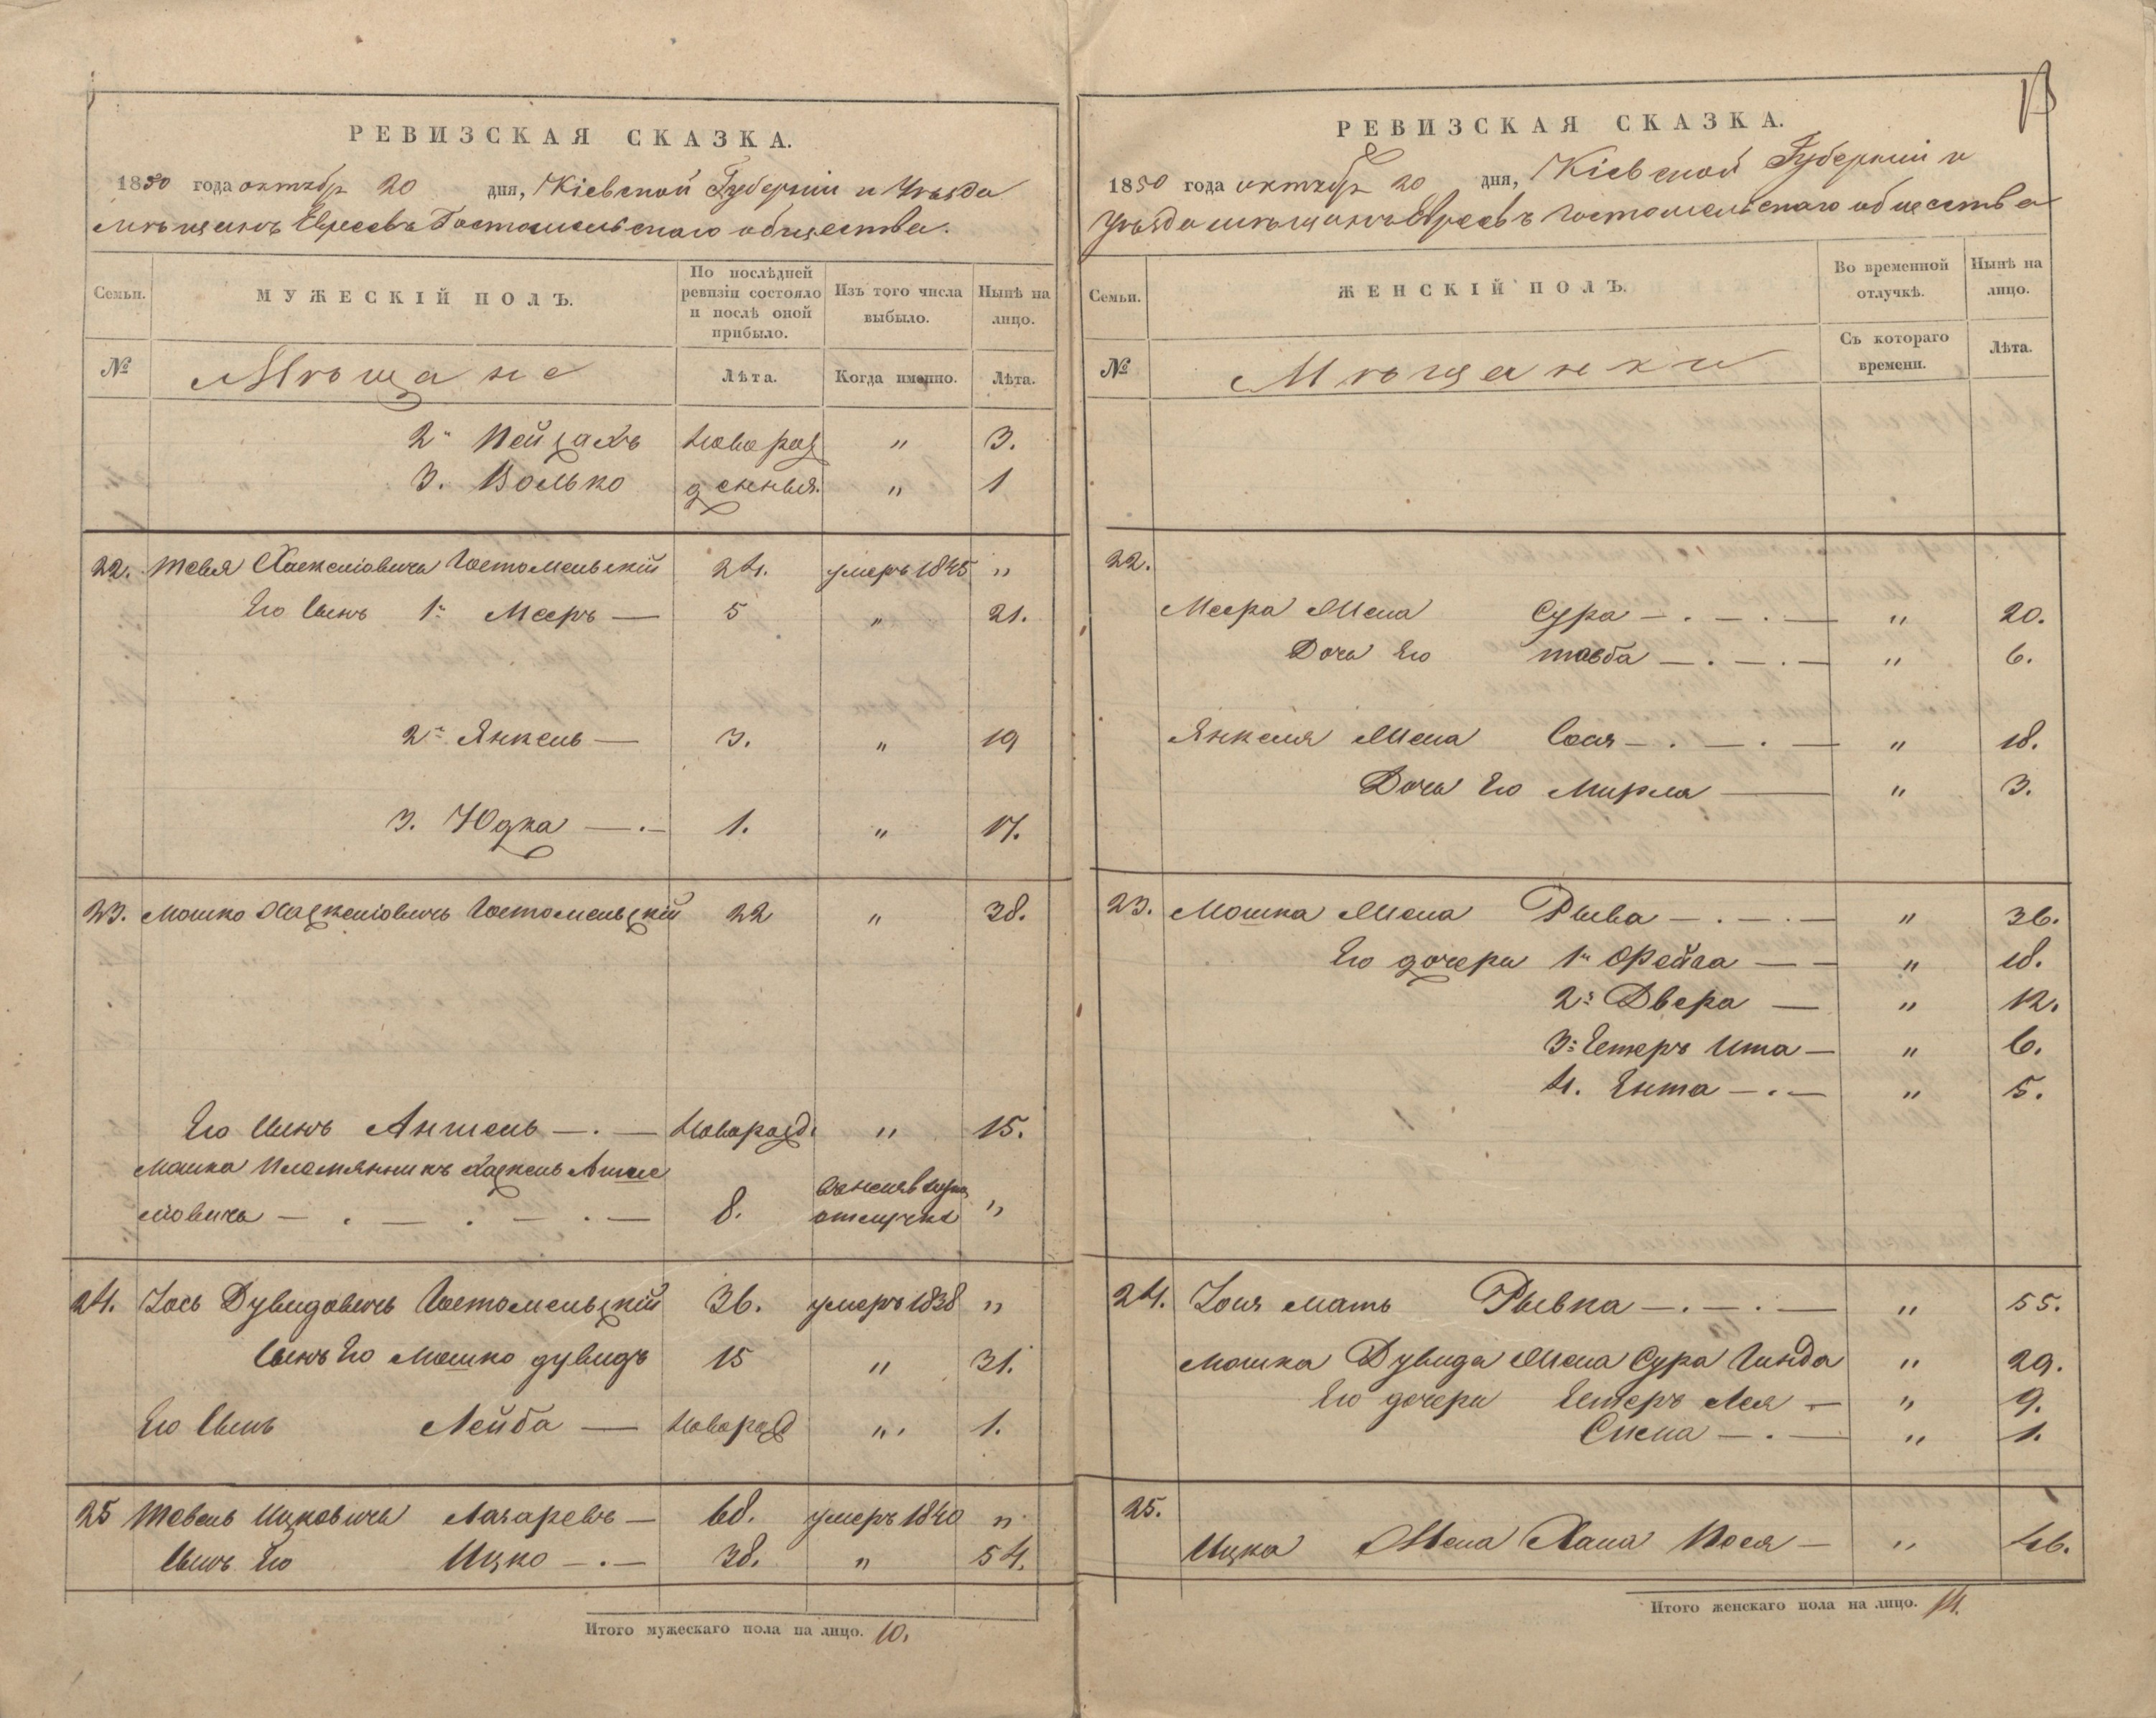 РЕВИЗСКАЯ СКАЗКА.
1850 года октябр 20 дня, Кіевской Губерніи и Уѣзда
мѣщанъ Евреевъ Гостомельскаго общества.
Семьи. МУЖЕСКІЙ ПОЛЪ. По послѣдней ревизіи состояло и послѣ оной прибыло. Изъ того числа выбыло. Нынѣ на лицо.
№ Мѣщане Лѣта. Когда именно. Лѣта.
2. Пейсахъ новорож „ 3.
3. Волько денныя. „ 1
22. Тевя Хаскеліовичъ Гостомельскій 24. умеръ 1845 „
Его Сынъ 1. Мееръ — 5 „ 21.
2. Янкель — 3. „ 19
3. Юдка — . — 1. „ 17.
23. Мошко Хаскеліовичъ Гостомельскій 22 „ 38.
Его Сынъ Аншель — . — Новорожд. „ 15.
Мошка Племянникъ Хаскель Аншe
ліовичъ — . — . — . — 8. отлучкѣ „
24. Іось Дувидовичъ Гостомельскій 36. умеръ 1838 „
Сынъ Его Мошко дувидъ 15 „ 31.
Его Сынъ Лейба — Новорожд „ . 1.
25 Тевель Ицковичъ Лазаревъ — 68. умеръ 1840 „
Сынъ Его Ицко — . — 38. „ 54.
Итого мужескаго пола на лицо. 10.
РЕВИЗСКАЯ СКАЗКА.
1850 года октябр 20 дня, Кіевской Губерніи и
Уѣзда мѣщанъ Евреевъ Гостомельскаго общества
Семьи. ЖЕНСКІЙ ПОЛЪ. Во временной отлучкѣ. Нынѣ на лицо.
№ Мѣщанки Съ котораго времени. Лѣта.
22.
Меера Жена Сура — . — . — „ 20.
Дочь Его Товба — . — . — „ 6.
Янкеля Жена Сося — . — . — „ 18.
Дочь Его Мирля — „ 3.
23. Мошка Жена Рыва — . — . — „ 36.
Его дочери 1. Фейга — — „ 18.
2. Двера — „ 12.
3. Естеръ Ита — „ 6.
4. Ента — . — „ 5.
24. Іося мать Рывка — . — . — „ 55.
Мошка Дувида Жена Сура Гинда „ 29.
Его дочери Естеръ Лея — „ 9.
Симa — . — „ 1.
25.
Ицка Жена Хана Песя — „ 46.
Итого женскаго пола на лицо. 14.